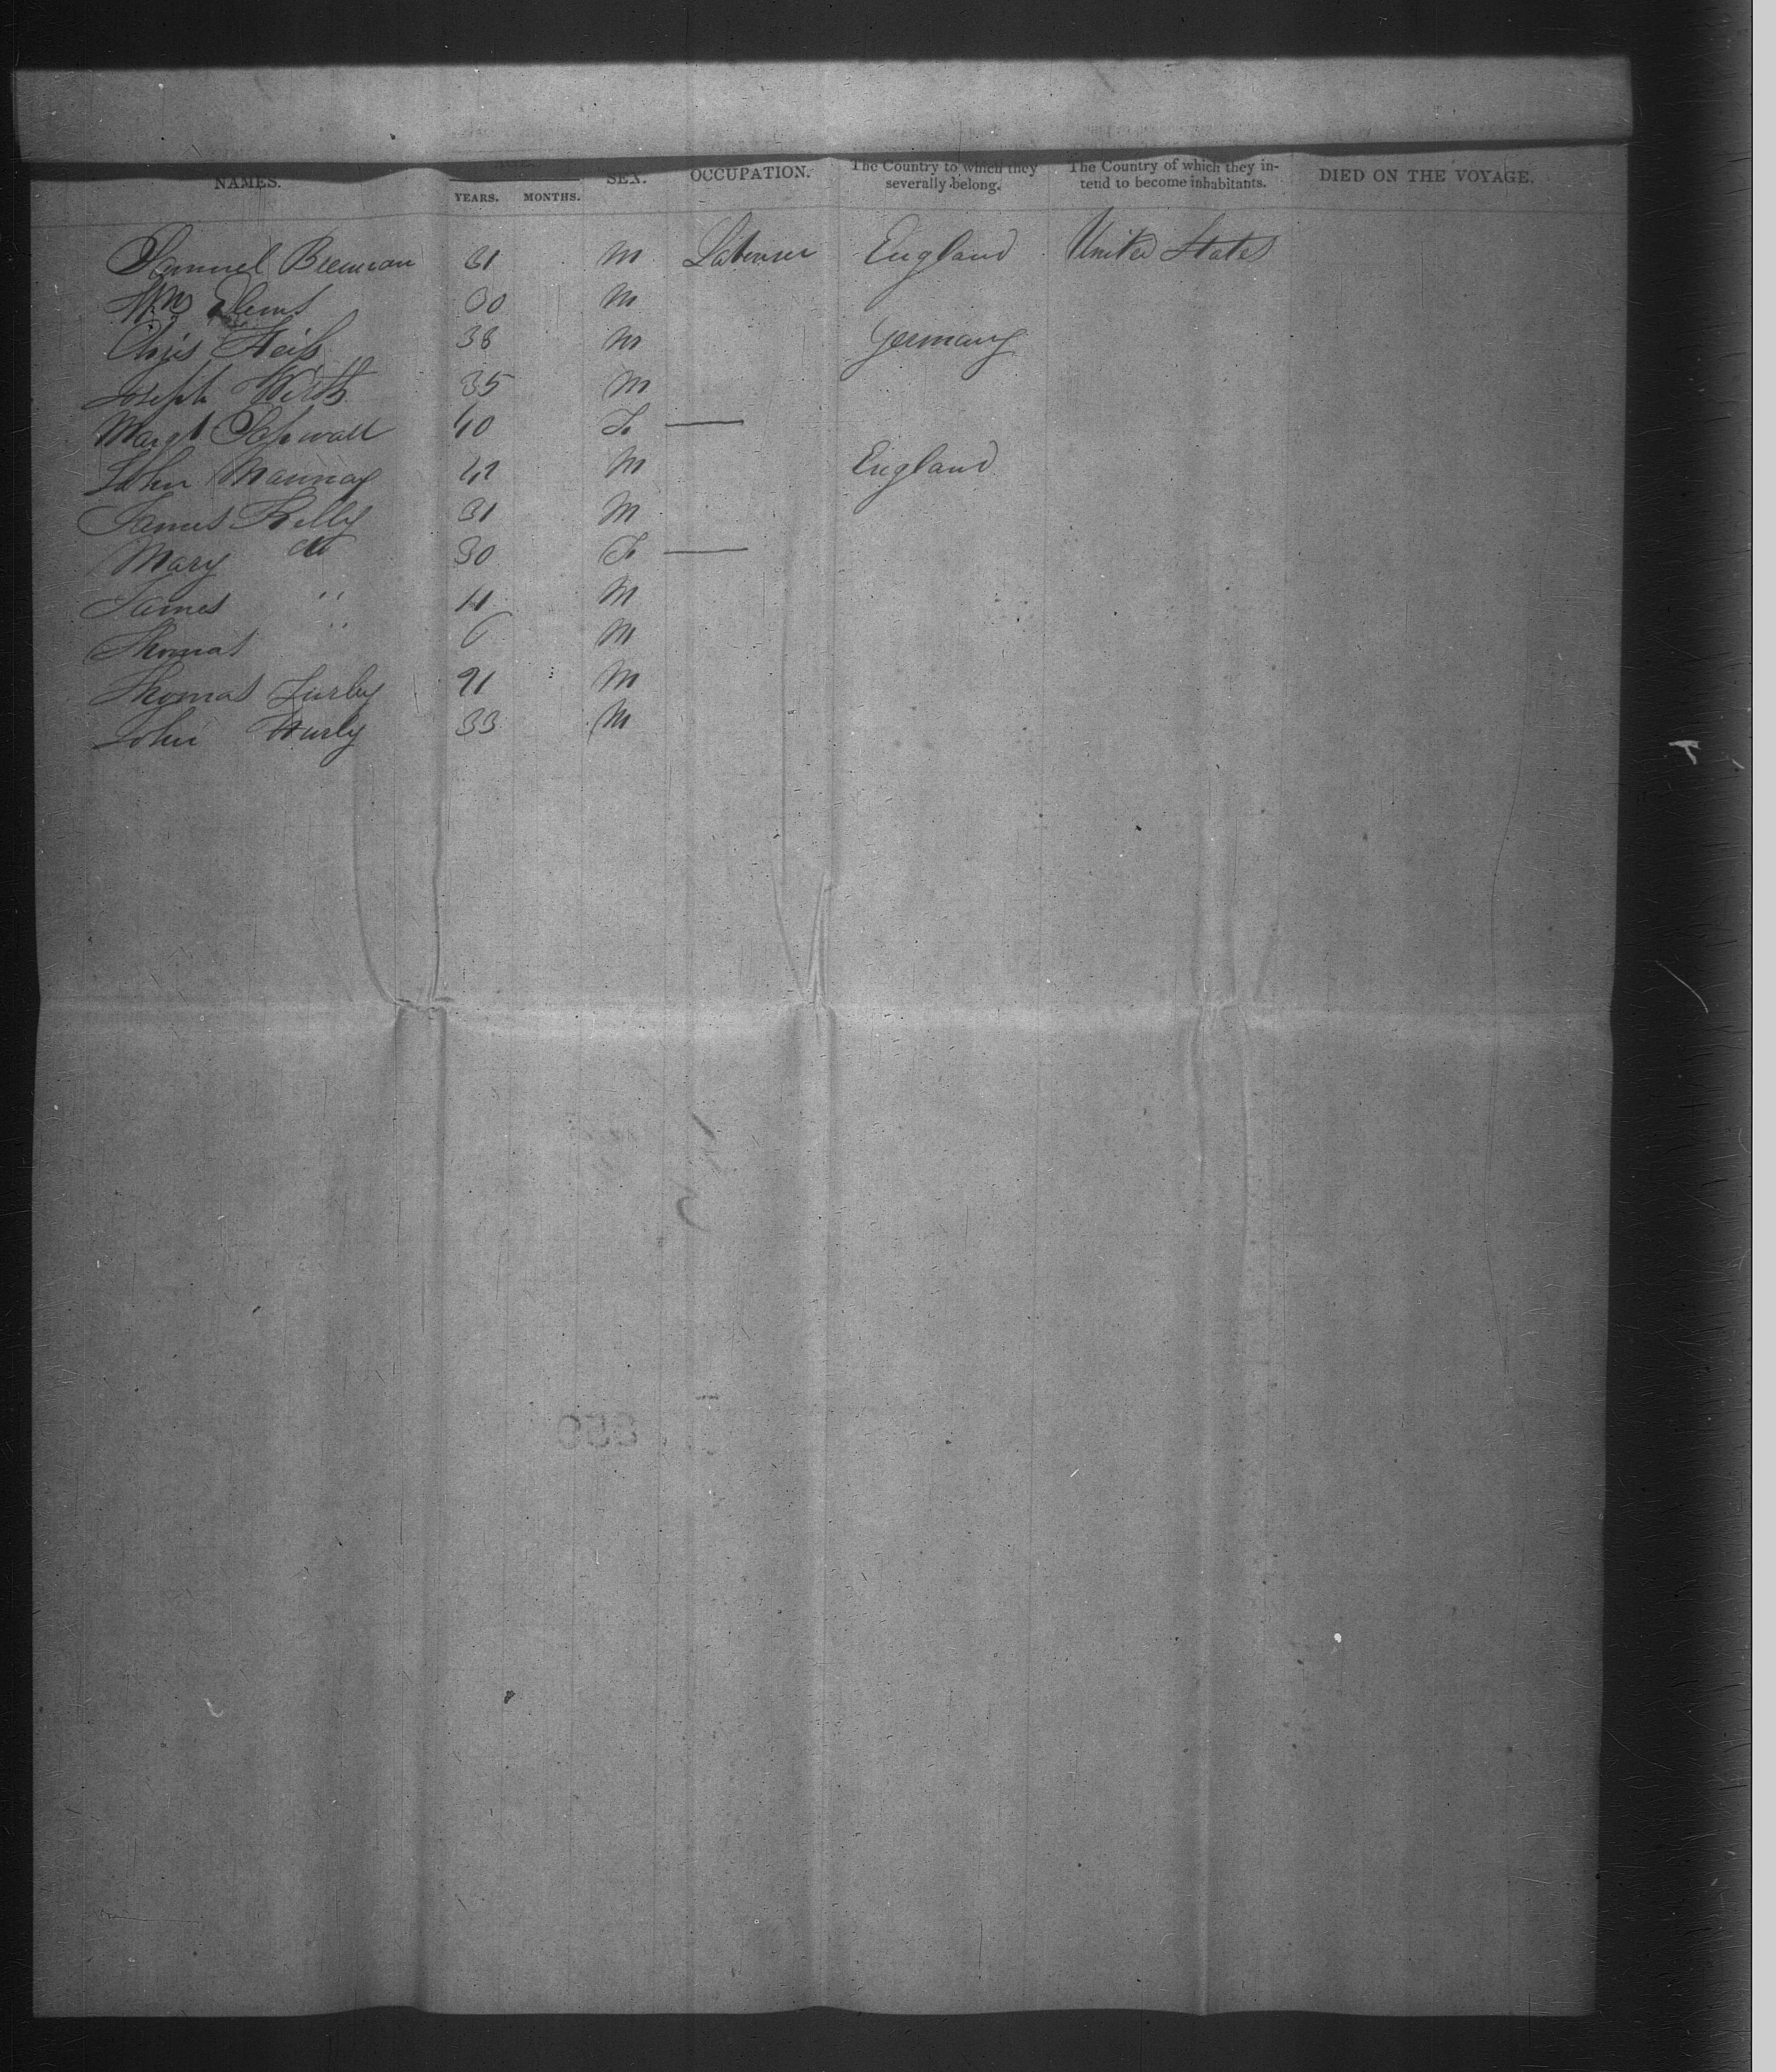 NAMES. YEARS. MONTHS. SEX. OCCUPATION. The Country to which they severally belong. The Country of which they intend to become inhabitants. DIED ON THE VOYAGE.
Samuel Brennan 31 M Labourer England United States
Wm 30 M
Chris Heiß 38 M Germany
Joseph Wirth 35 M
Margt 40 F —
John Mannay 42 M England
James Kelly 31 M
Mary do 30 F —
James " 11 M
Thomas " 6 M
Thomas Furley 21 M
John Hurly 33 M
850